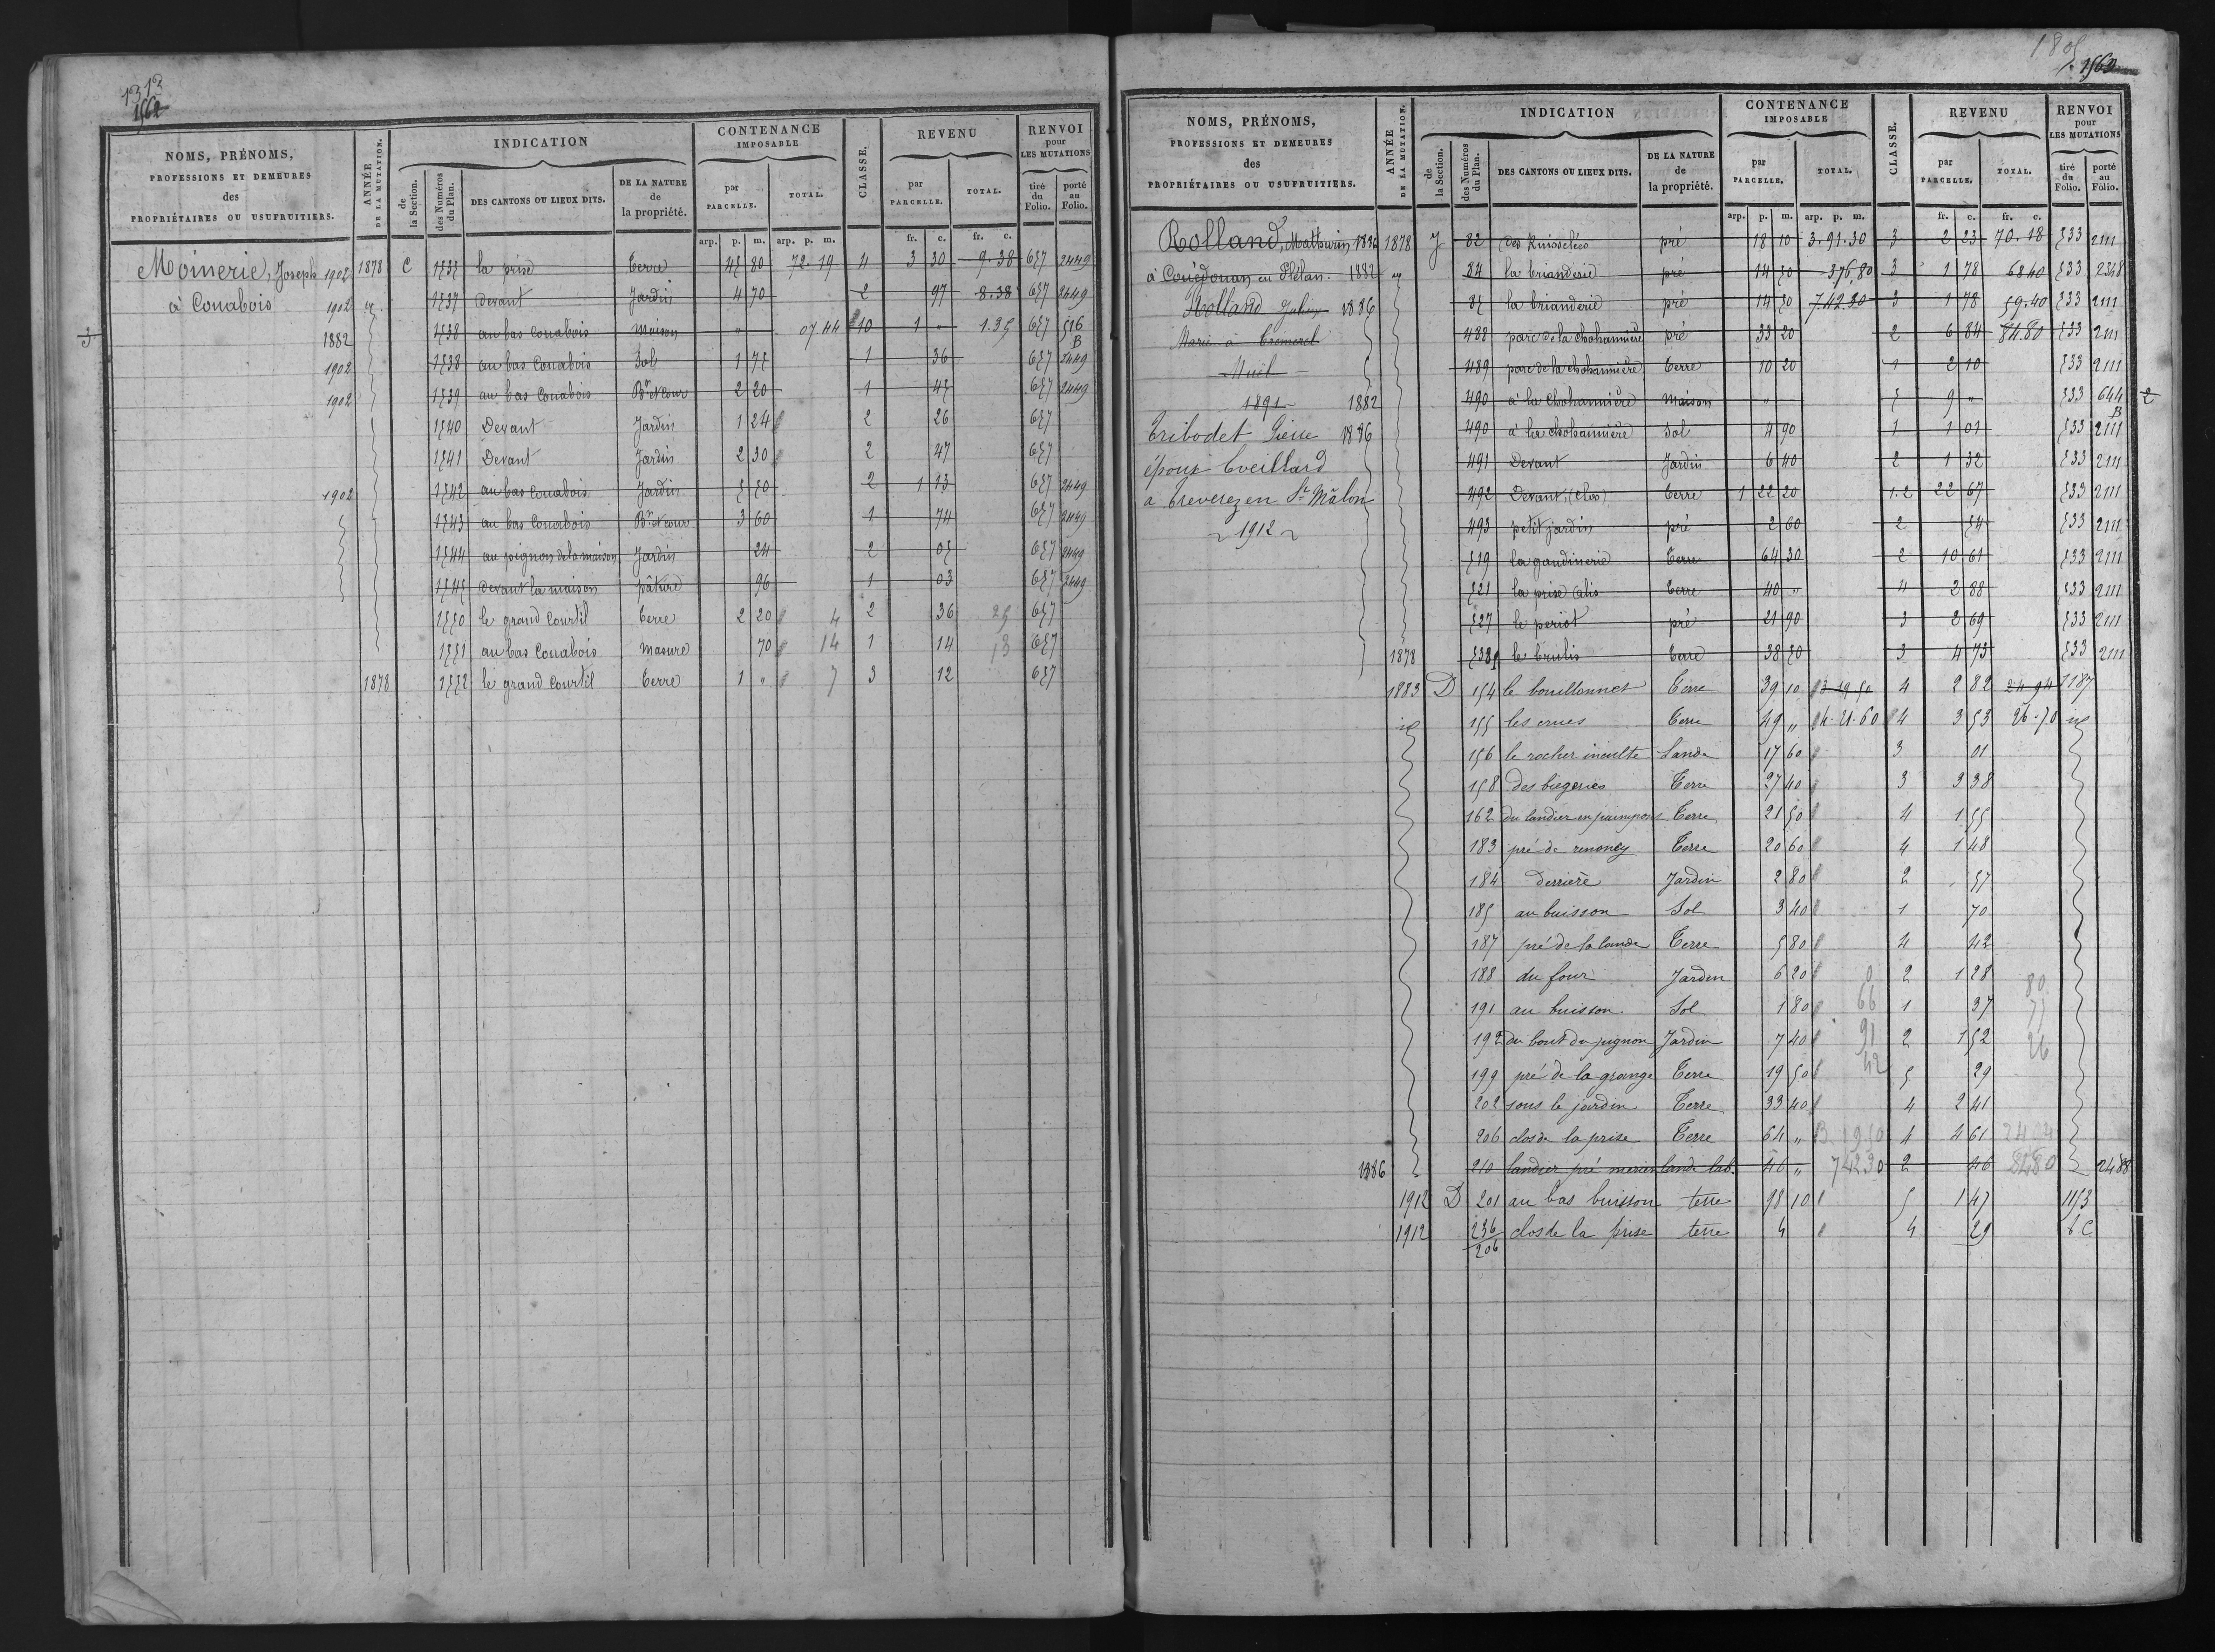 1313
1562
NOMS, PRÉNOMS, PROFESSIONS ET DEMEURES des PROPRIÉTAIRES OU USUFRUITIERS.
ANNÉE DE LA MUTATION.
INDICATION
de la Section.
des Numéros du Plan.
DES CANTONS OU LIEUX DITS.
DE LA NATURE de la propriété.
CONTENANCE IMPOSABLE
par PARCELLE.
TOTAL.
CLASSE.
REVENU
par PARCELLE.
TOTAL.
RENVOI pour LES MUTATIONS
tiré du Folio.
porté au Folio.
arp. p. m. arp. p. m. fr. c. fr. c.
Moinerie, Joseph 1902 1878 C 1535 la prise terre 45 80 72.19 4 3 30 9.38 657 2449
à Couabois 1902 1537 devant Jardin 4 70 2 97 8.38 657 2449
3 1882 1538 au bas Couabois Maison " 07.44 10 1 " 1.35 657 516 B
1902 1538 au bas Couabois Sol 1 75 1 36 657 2449
1902 1539 au bas Couabois Bt. et Cour 2 20 1 45 657 2449
1540 Devant Jardin 1 24 2 26 657
1541 Devant Jardin 2 30 2 47 657
1902 1542 au bas Couabois Jardin 5 50 2 1 13 657 2449
1543 au bas Couabois Bt. et cour 3 60 1 74 657 2449
1544 au pignon de la maison Jardin 24 2 05 657 2449
1545 devant la maison pâture 96 1 03 657 2449
1550 le grand Courtil terre 2 20 4 2 36 25 657
1551 au bas Couabois Masure 70 14 1 14 13 657
1878 1552 le grand Courtil terre 1 " 7 3 12 657
1805
1563
NOMS, PRÉNOMS, PROFESSIONS ET DEMEURES des PROPRIÉTAIRES OU USUFRUITIERS.
ANNÉE DE LA MUTATION.
INDICATION
de la Section.
des Numéros du Plan.
DES CANTONS OU LIEUX DITS.
DE LA NATURE de la propriété.
CONTENANCE IMPOSABLE
par PARCELLE.
TOTAL.
CLASSE.
REVENU
par PARCELLE.
TOTAL.
RENVOI pour LES MUTATIONS
tiré du Folio.
porté au Folio.
arp. p. m. arp. p. m. fr. c. fr. c.
Rolland, Mathurin 1886 1878 J 82 des Ruisselées pré 18 10 3.91.30 3 2 23 70.18 533 2111
à Couëdouan en Plélan. 1882 84 la brianderie pré 14 50 376,80 3 1 78 68.40 533 2348
Rolland 1886 85 la brianderie pré 14 50 7.42.30 3 1 78 59.40 533 2111
Marie à Tremerel 488 parc de la chohannière pré 33 20 2 6 84 84.80 533 2111
Muil 489 parc de la chohannière terre 10 20 1 2 10 533 2111
1891 1882 490 à la Chohannière Maison " 5 9 " 533 644 B 2
Tribodet Pierre 1886 490 à la chohannière Sol 4 90 1 1 01 533 2111
époux Eveillard 491 Devant Jardin 6 40 2 1 32 533 2111
a treverez en St. Mâlon 492 Devant (clos) terre 1 22 20 1.2 22 67 533 2111
1912 493 petit jardin pré 2 60 2 54 533 2111
519 la gaudinerie terre 64 30 2 10 61 533 2111
521 la prise Alis terre 40 " 4 2 88 533 2111
527 le periot pré 21 90 3 2 69 533 2111
1878 538 le brulis terre 38 50 3 4 73 533 2111
1883 D 154 le bouillonnet terre 39 10 13 19 50 4 2 82 24 94 1187
id 155 les Terre 49 " 4.21.60 4 3 53 26.70 id
156 le rocher inculte Lande 17 60 3 01
158 des biegeries Terre 27 40 3 3 38
162 du landier en paimpont Terre 21 50 4 1 55
183 pré de Terre 20 60 4 1 48
184 derrière Jardin 2 80 2 57
185 au buisson Sol 3 40 1 70
187 pré de la lande Terre 5 80 4 42
188 du four Jardin 6 20 0 2 1 28 80
191 au buisson Sol 1 80 66 1 37 75
192 du bout du pignon Jardin 7 40 91 2 1 52 26
199 pré de la grange Terre 19 50 42 5 29
202 sous le jardin Terre 33 40 4 2 41
206 clos de la prise Terre 64 " 3.19.50 4 4 61 2424
1886 210 landier pré lande lab. 46 " 74230 2 46 8480 2488
1912 D 201 au bas buisson terre 98 10 5 1 47 1153
1912 236/206 clos de la prise terre 4 4 29 6 C